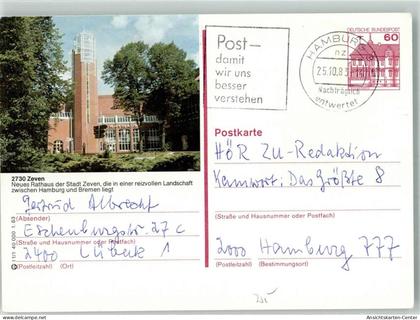 Post–
damit
wir uns
besser
verstehen
HAMBURG
25.10.83
Nachträglich
entwertet
DEUTSCHE BUNDESPOST
60
2730 Zeven
Neues Rathaus der Stadt Zeven, die in einer reizvollen Landschaft
zwischen Hamburg und Bremen liegt
Gertrud Albrecht
(Absender)
Eschenburgstr. 27 c
(Straße und Hausnummer oder Postfach)
2400 Lübeck 1
(Postleitzahl) (Ort)
Postkarte
HÖR ZU-Redaktion
Kennwort: Das Größte 8
(Straße und Hausnummer oder Postfach)
2000 Hamburg 777
(Postleitzahl) (Bestimmungsort)
Ansichtskarten-Center